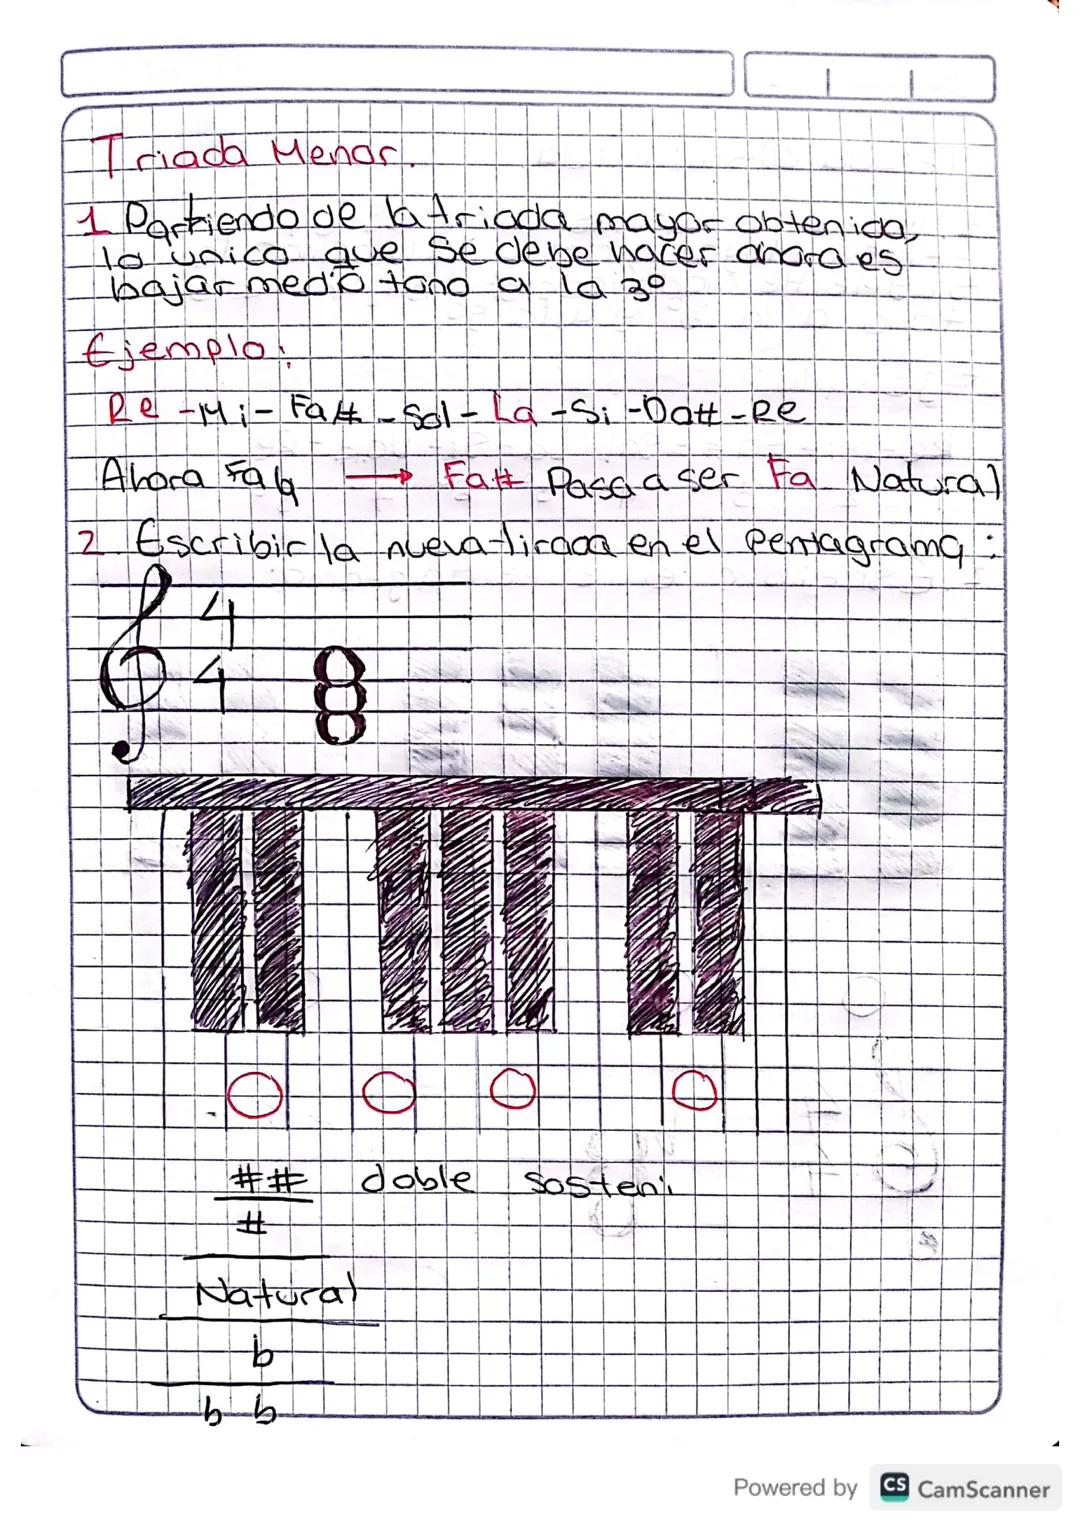 Triada Menor.
1 Partiendo de la triada mayor obtenida,
lo unico que se debe hacer ahora es
bajar medio tono a la 3º
Ejemplo:
Re - Mi - Fa# - Sol - La - Si - Do# - Re
Ahora Fa♮ → Fa# Pasa a ser Fa Natural
2 Escribir la nueva tirada en el pentagrama:
4
4
## doble sosteni
#
Natural
b
b b
Powered by CS CamScanner